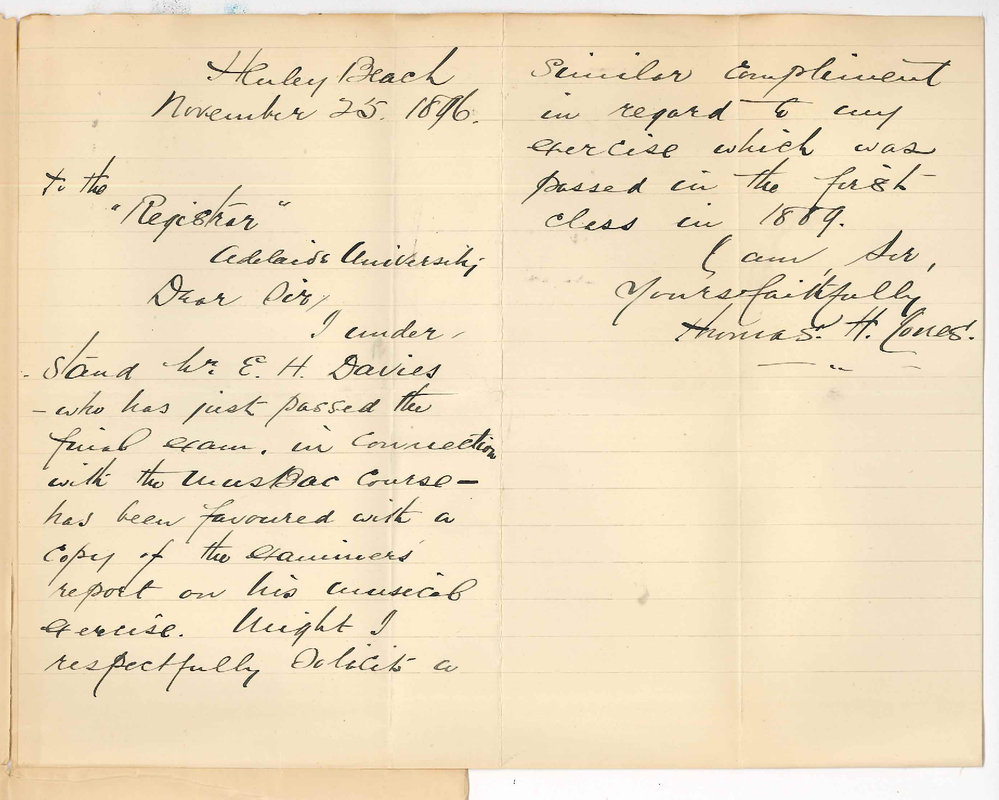 Henley Beach
November 25. 1896.
to the
"Registrar"
Adelaide University
Dear Sir,
I under-
-stand Mr. E. H. Davies
- who has just passed the
final exam. in connection
with the MusBac Course -
has been favoured with a
copy of the examiners'
report on his musical
exercise. Might I
respectfully solicit a
similar compliment
in regard to my
exercise which was
passed in the first
class in 1889.
I am, Sir,
Yours faithfully
Thomas. H. Jones.